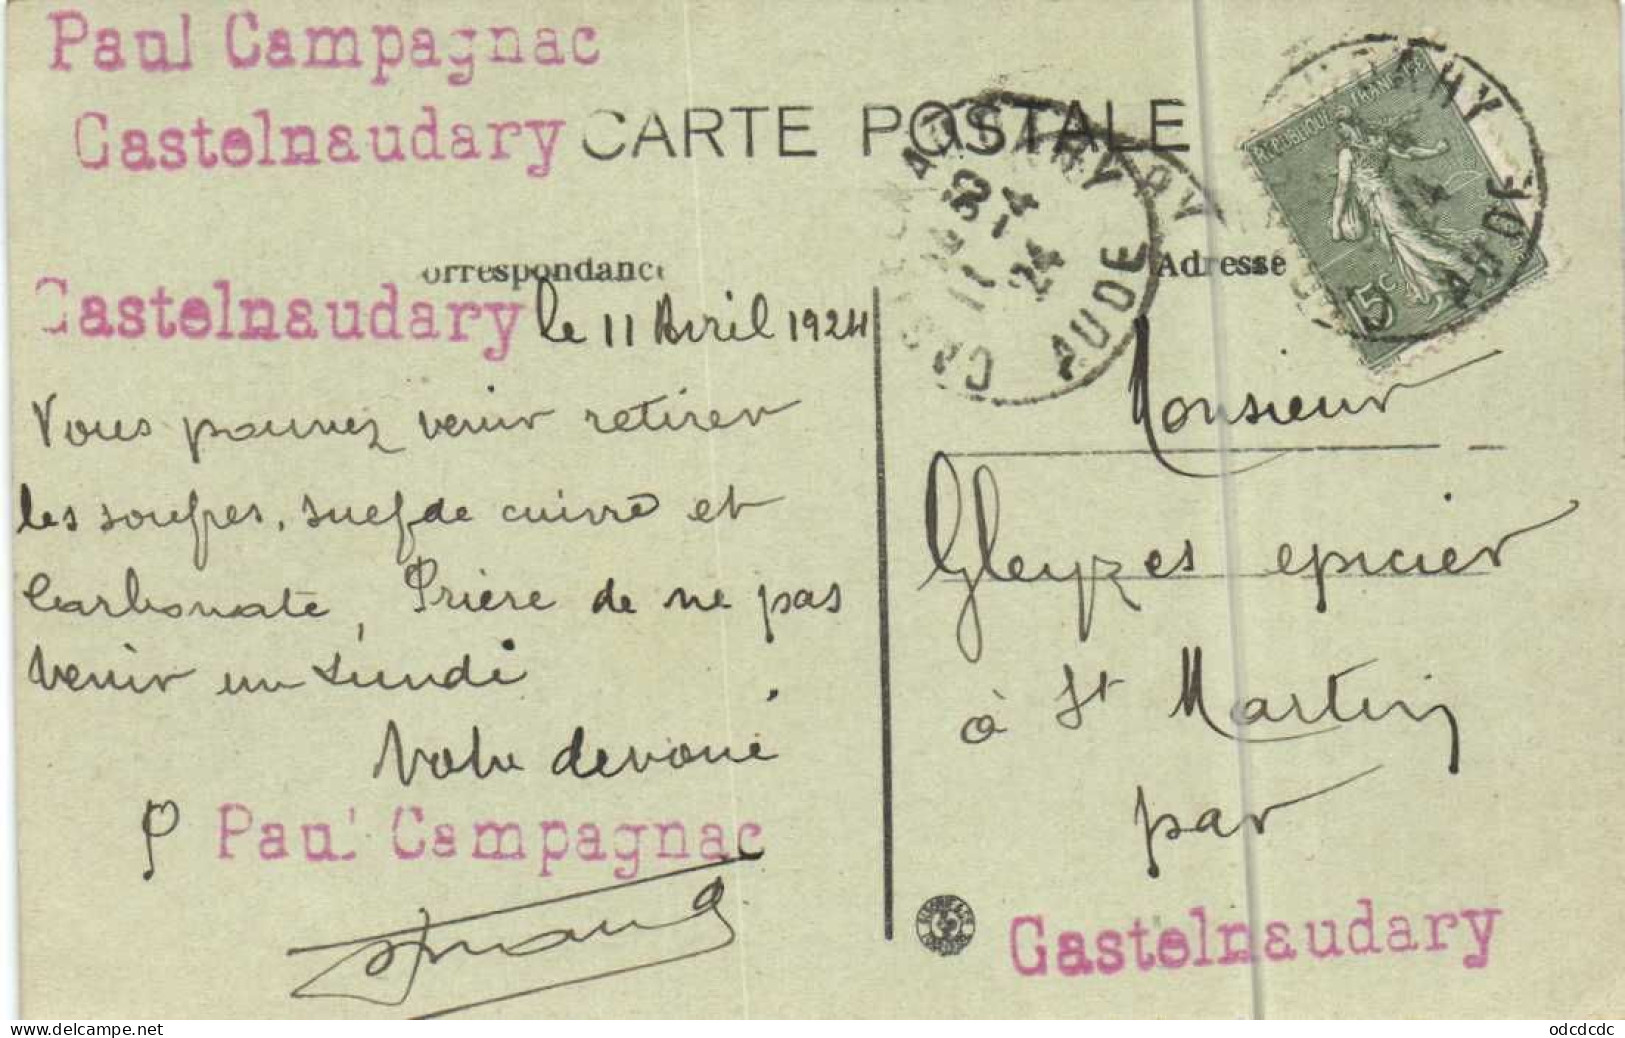 Paul Campagnac
Castelnaudary
CARTE POSTALE
orrespondance
Adresse
REPUBLIQUE FRANCAISE
15c
AUDE
AUDE
11 - 4
24
Castelnaudary le 11 Avril 1924
Vous pouvez venir retirer
les soufres, sulf de cuivre et
Carbonate, Prière de ne pas
venir un Lundi.
Votre dévoué
P Paul Campagnac
Monsieur
Gleyzes epicier
à St Martin
par
Castelnaudary
odcdcdc
www.delcampe.net